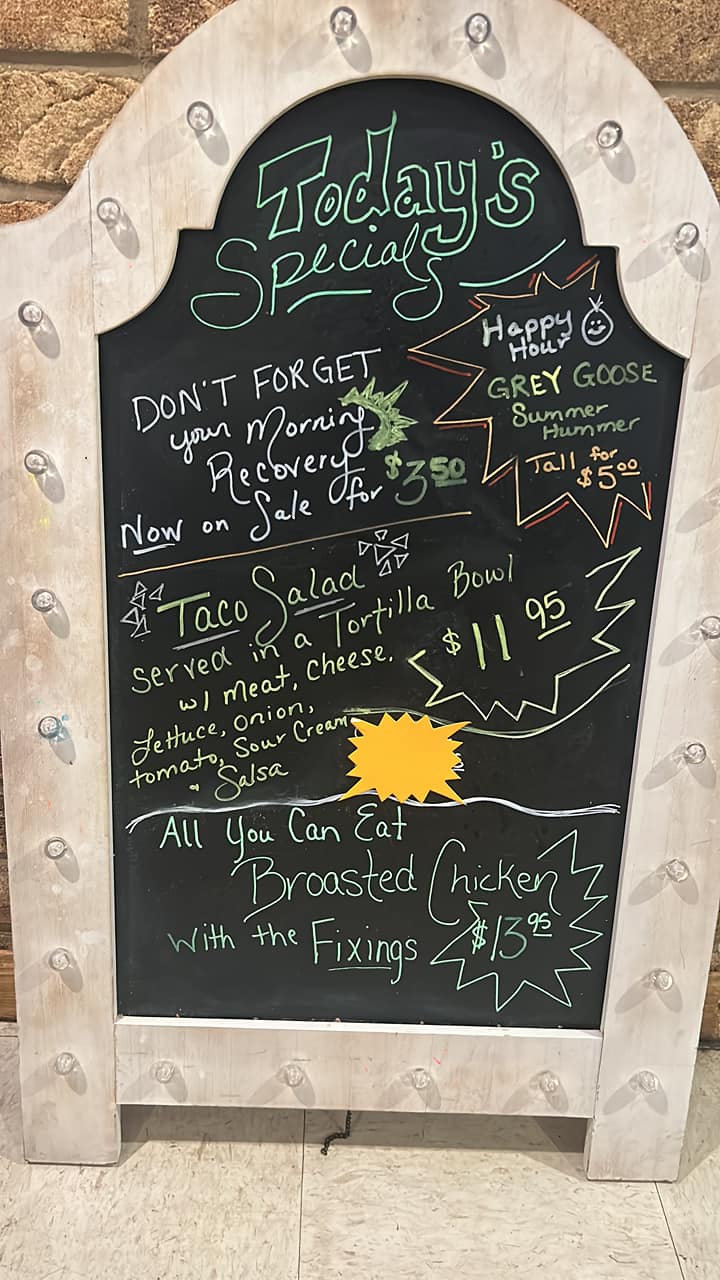 Today's
Specials
Happy
Hour
GREY GOOSE
Summer
Hummer
Tall for
$5.00
DON'T FORGET
your Morning
Recovery
Now on Sale for $3.50
Taco Salad
served in a Tortilla Bowl
w/ meat, cheese,
Lettuce, onion,
tomato, Sour Cream
• Salsa
$11.95
All You Can Eat
Broasted Chicken
with the Fixings $13.95